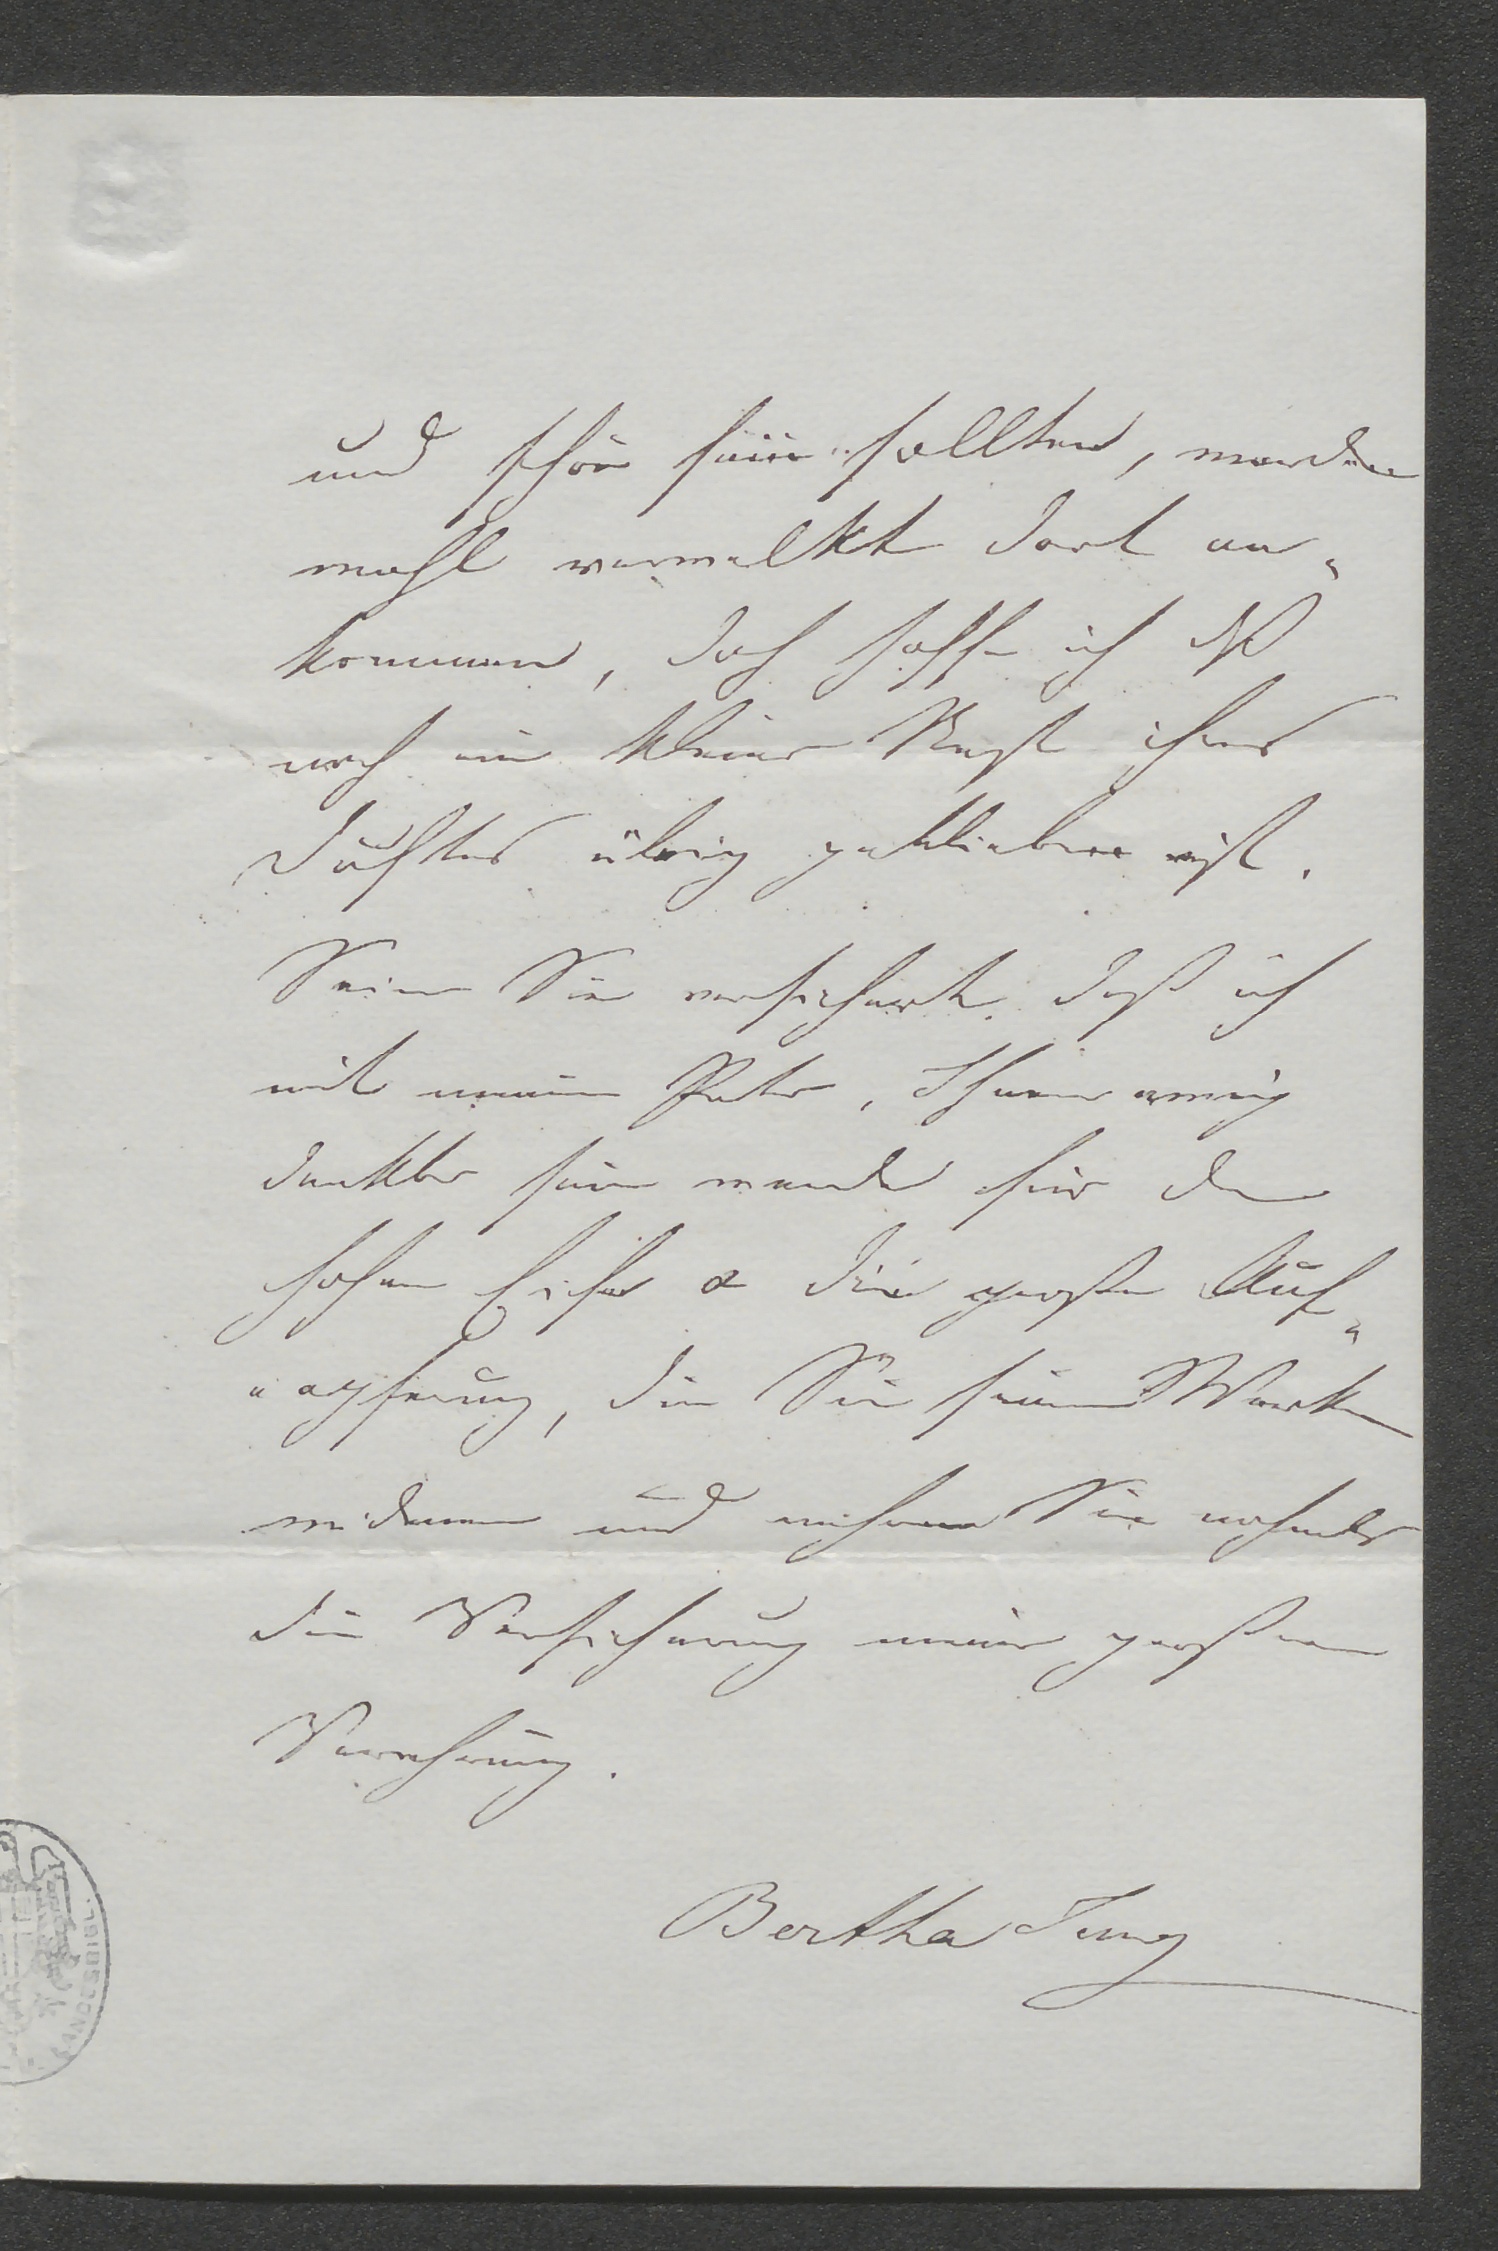 und schön sein sollten, werden
wohl verwelkt dort an-
kommen, doch hoffe ich daß
noch ein kleiner Rest ihres
Duftes übrig geblieben ist.
Seien Sie versichert, daß ich
mit meinem Vater, Ihnen ewig
dankbar sein werde für den
hohen Eifer & die große Auf-
"opferung, die Sie seinen Werken
widmen und nehmen Sie nochmals
die Versicherung meiner großen
Verehrung.
Bertha Jung
LANDESBIBL.